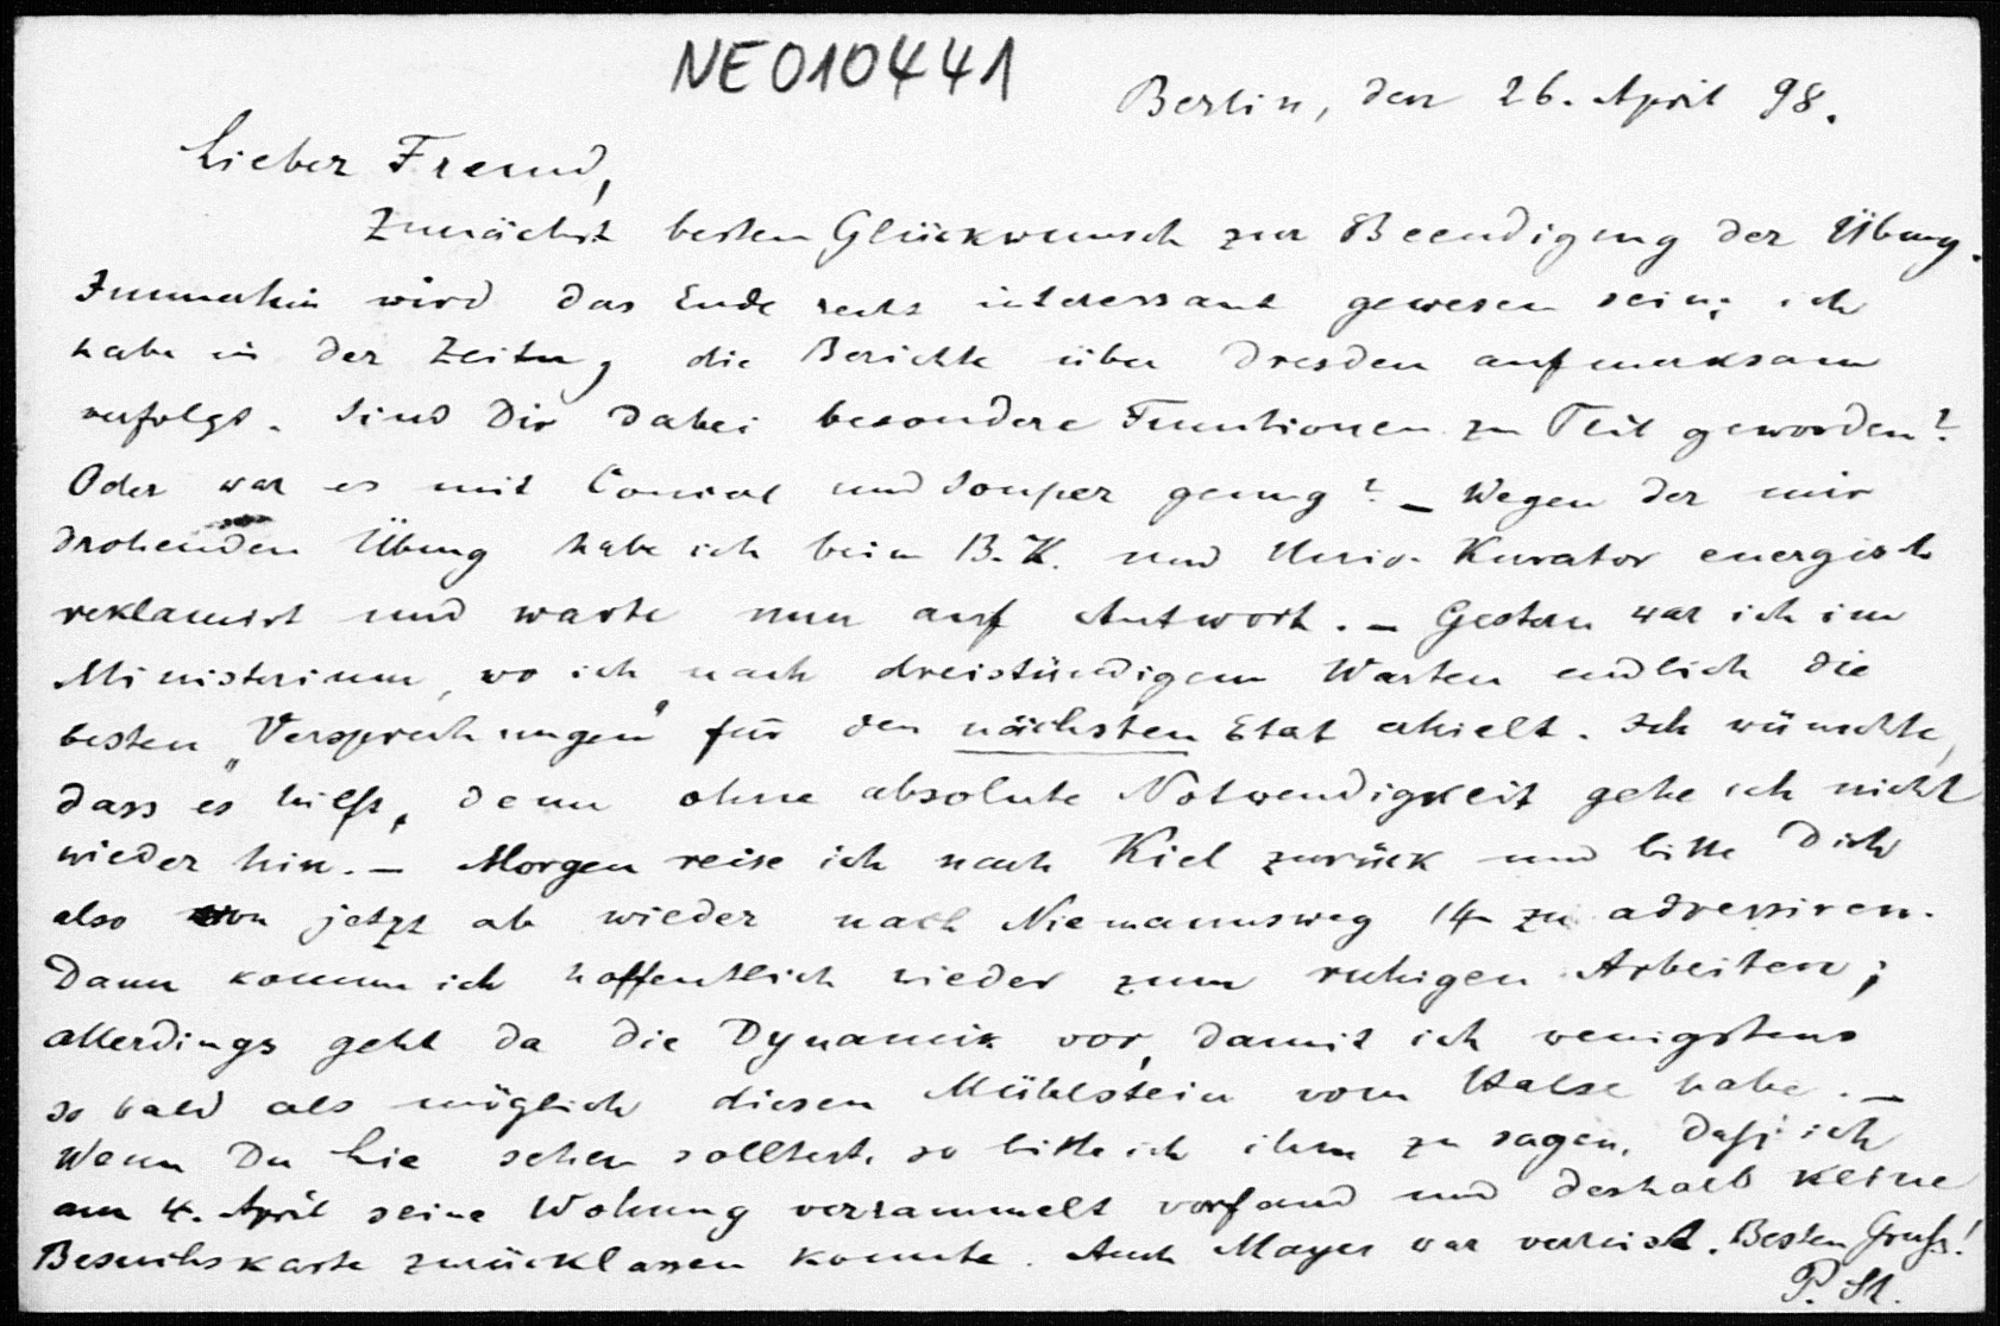 NE010441
Berlin, den 26. April 98.
Lieber Freund,
Zunächst besten Glückwunsch zur Beendigung der Übung.
Immerhin wird das Ende recht interessant gewesen sein; ich
habe in der Zeitung die Berichte über Dresden aufmerksam
verfolgt. Sind Dir dabei besondere Funktionen zu Teil geworden?
Oder war es mit und Souper genug? – Wegen der mir
drohenden Übung habe ich beim B. K. und Univ. Kurator energisch
reklamirt und warte nun auf Antwort. – Gestern war ich im
Ministerium, wo ich nach dreistündigem Warten endlich die
besten „Versprechungen“ für den nächsten Etat erhielt. Ich wünschte,
dass es hilft, denn ohne absolute Notwendigkeit gehe ich nicht
wieder hin. – Morgen reise ich nach Kiel zurück und bitte Dich
also von jetzt ab wieder nach Niemannsweg 14 zu adressiren.
Dann komme ich hoffentlich wieder zum ruhigen Arbeiten;
allerdings geht da die Dynamik vor, damit ich wenigstens
so bald als möglich diesen Mühlstein vom Halse habe. –
Wenn Du Lie sehen solltest, so bitte ich ihm zu sagen, daß ich
am 4. April seine Wohnung verrammelt vorfand und deshalb keine
Besuchskarte zurücklassen konnte. Auch Mayer war verreist. Besten Gruß!
P. St.